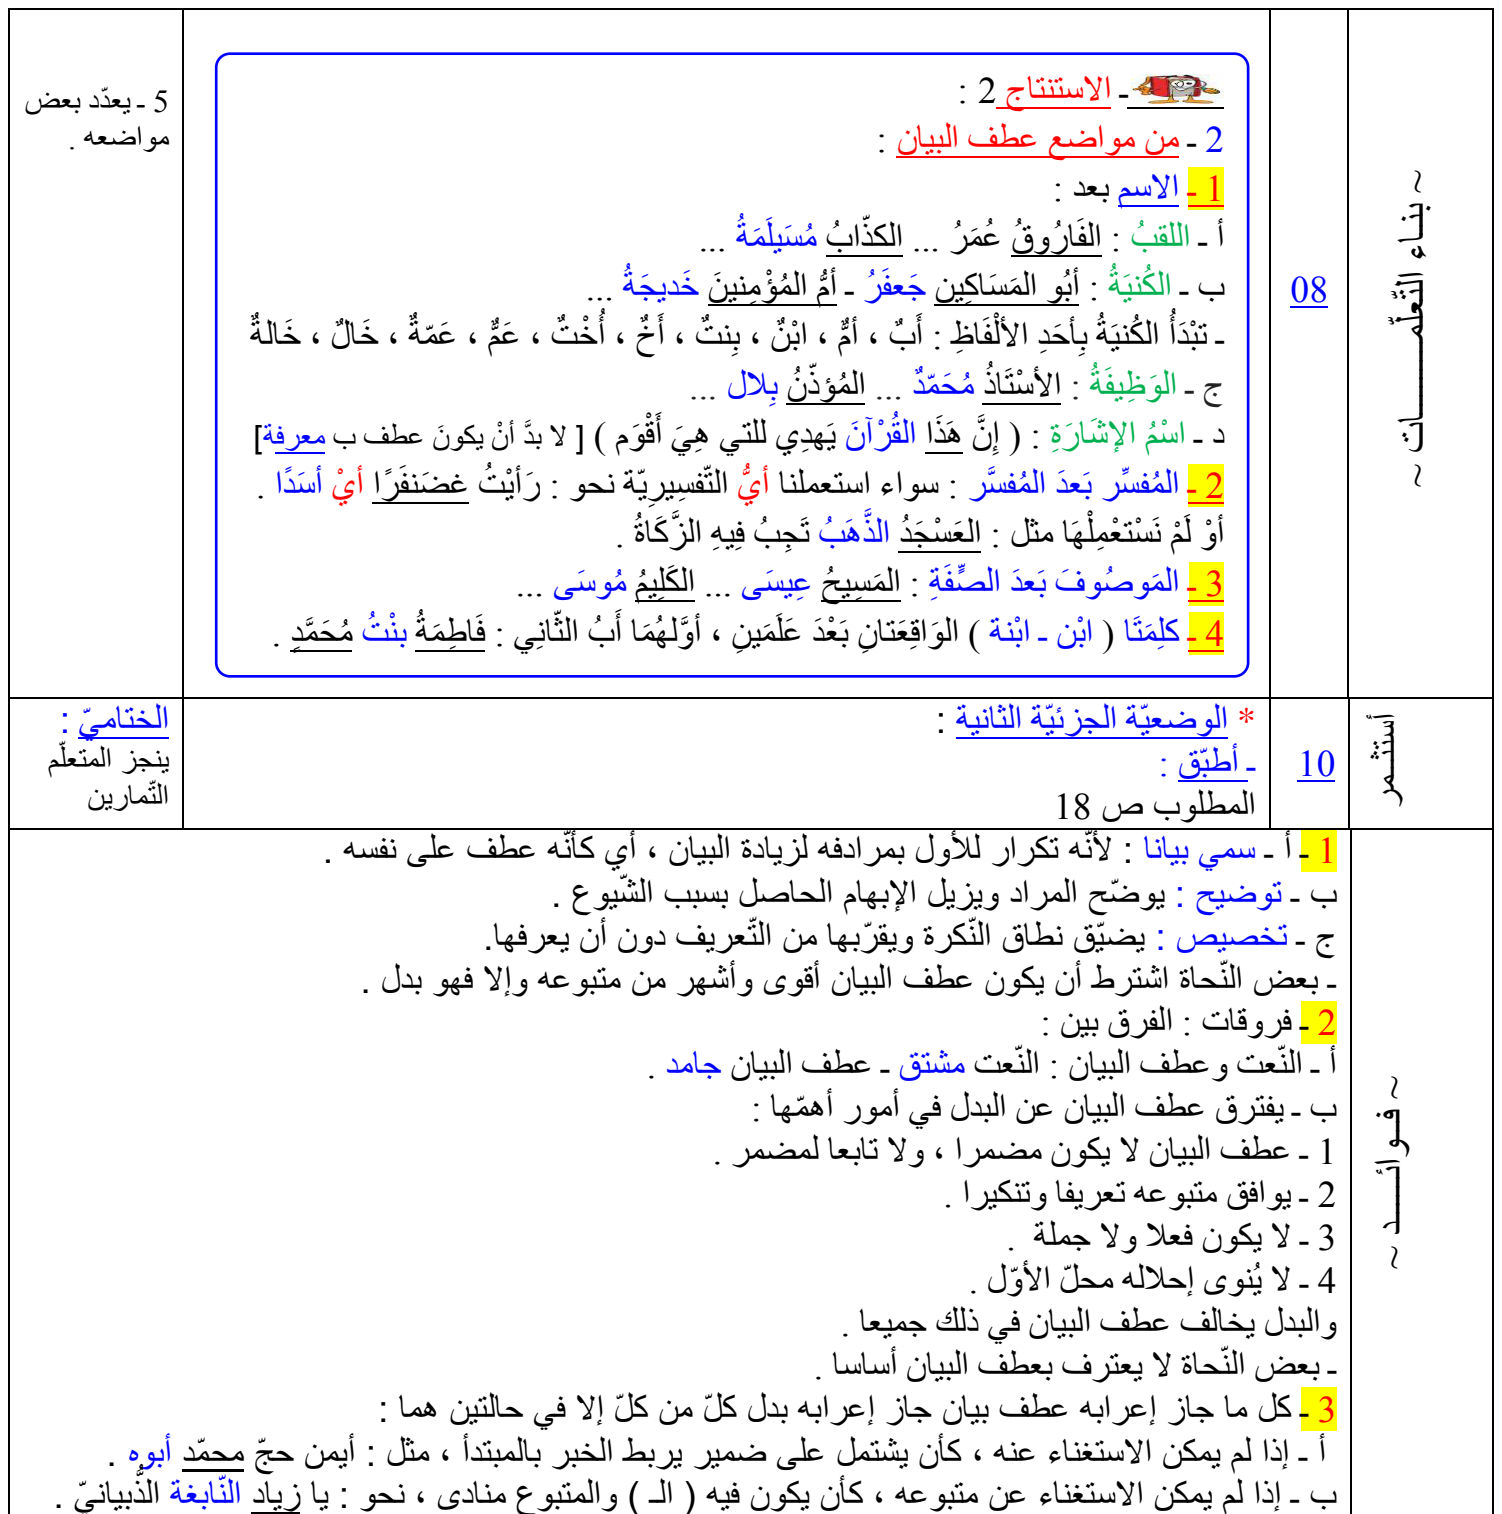 ~ بنـاء التّعلّمــــــــات ~
08
ـ الاستنتاج 2 :
2 ـ من مواضع عطف البيان :
1 ـ الاسم بعد :
أ ـ اللقبُ : الفَارُوقُ عُمَرُ ... الكذّابُ مُسَيلَمَةُ ...
ب ـ الكُنيَةُ : أبُو المَسَاكِينِ جَعفَرُ ـ أمُّ المُؤْمِنينَ خَديجَةُ ...
ـ تبْدَأُ الكُنيَةُ بِأحَدِ الألْفَاظِ : أَبٌ ، أمٌّ ، ابْنٌ ، بِنتٌ ، أَخٌ ، أُخْتٌ ، عَمٌّ ، عَمّةٌ ، خَالٌ ، خَالةٌ
ج ـ الوَظِيفَةُ : الأسْتَاذُ مُحَمّدٌ ... المُؤذّنُ بِلال ...
د ـ اسْمُ الإشَارَةِ : ( إنَّ هَذَا القُرْآنَ يَهدِي للتي هِيَ أَقْوَم ) [ لا بدَّ أنْ يكونَ عطف ب معرفة]
2 ـ المُفسِّر بَعدَ المُفسَّر : سواء استعملنا أيُّ التّفسِيرِيّة نحو : رَأيْتُ غضَنفَرًا أيْ أسَدًا .
أوْ لَمْ نَسْتعْمِلْهَا مثل : العَسْجَدُ الذَّهَبُ تَجِبُ فِيهِ الزَّكَاةُ .
3 ـ المَوصُوفَ بَعدَ الصِّفَةِ : المَسِيحُ عِيسَى ... الكَلِيمُ مُوسَى ...
4 ـ كلِمَتَا ( ابْن ـ ابْنة ) الوَاقِعَتانِ بَعْدَ عَلَمَينِ ، أوَّلهُمَا أَبُ الثّانِي : فَاطِمَةُ بنْتُ مُحَمَّدٍ .
5 ـ يعدّد بعض
مواضعه .
أستثـمر
10
* الوضعيّة الجزئيّة الثانية :
ـ أطبّق :
المطلوب ص 18
الختاميّ :
ينجز المتعلّم
التّمارين
~ فــوائــــــد ~
1 ـ أ ـ سمي بيانا : لأنّه تكرار للأول بمرادفه لزيادة البيان ، أي كأنّه عطف على نفسه .
ب ـ توضيح : يوضّح المراد ويزيل الإبهام الحاصل بسبب الشّيوع .
ج ـ تخصيص : يضيّق نطاق النّكرة ويقرّبها من التّعريف دون أن يعرفها.
ـ بعض النّحاة اشترط أن يكون عطف البيان أقوى وأشهر من متبوعه وإلا فهو بدل .
2 ـ فروقات : الفرق بين :
أ ـ النّعت وعطف البيان : النّعت مشتق ـ عطف البيان جامد .
ب ـ يفترق عطف البيان عن البدل في أمور أهمّها :
1 ـ عطف البيان لا يكون مضمرا ، ولا تابعا لمضمر .
2 ـ يوافق متبوعه تعريفا وتنكيرا .
3 ـ لا يكون فعلا ولا جملة .
4 ـ لا يُنوى إحلاله محلّ الأوّل .
والبدل يخالف عطف البيان في ذلك جميعا .
ـ بعض النّحاة لا يعترف بعطف البيان أساسا .
3 ـ كل ما جاز إعرابه عطف بيان جاز إعرابه بدل كلّ من كلّ إلا في حالتين هما :
أ ـ إذا لم يمكن الاستغناء عنه ، كأن يشتمل على ضمير يربط الخبر بالمبتدأ ، مثل : أيمن حجّ محمّد أبوه .
ب ـ إذا لم يمكن الاستغناء عن متبوعه ، كأن يكون فيه ( الـ ) والمتبوع منادى ، نحو : يا زياد النّابغة الذُّبيانيّ .